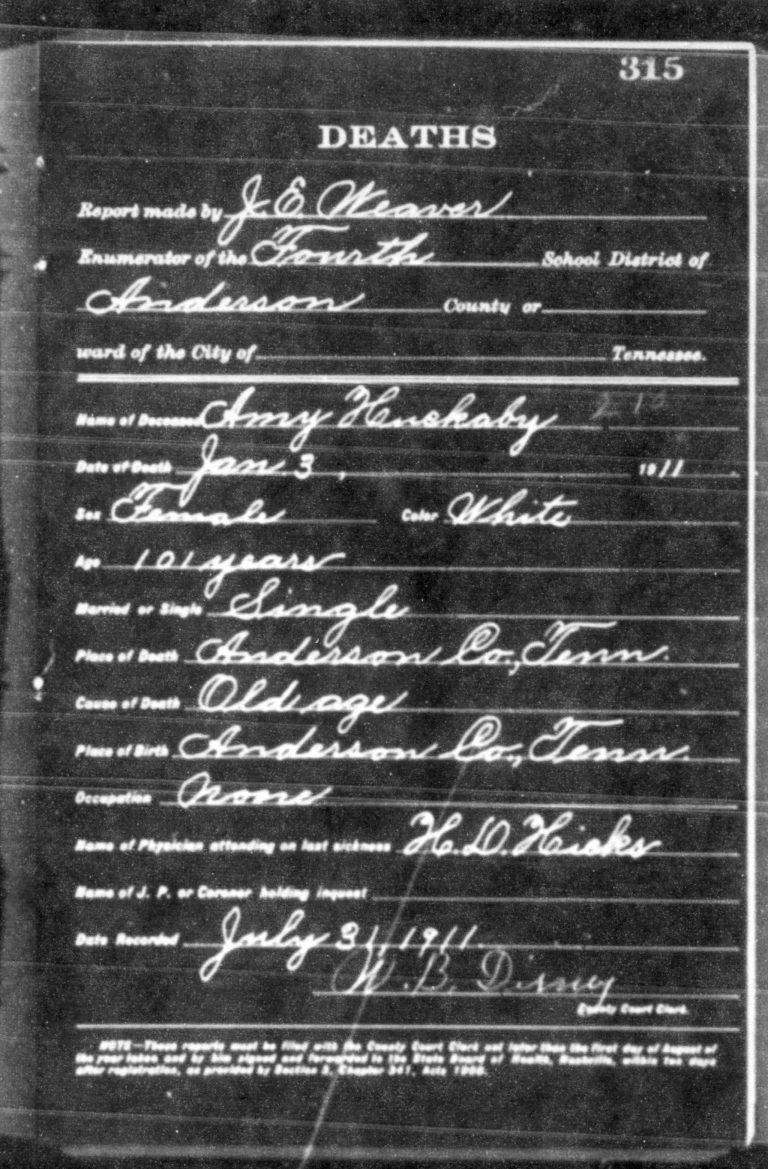 315
DEATHS
Report made by J. E. Weaver
Enumerator of the Fourth School District of
Anderson County or
ward of the City of Tennessee.
Name of Deceased Amy Huckaby
Date of Death Jan 3, 1911
Sex Female Color White
Age 101 years
Married or Single Single
Place of Death Anderson Co., Tenn.
Cause of Death Old age
Place of Birth Anderson Co., Tenn.
Occupation None
Name of Physician attending on last sickness H. D. Hicks
Name of J. P. or Coroner holding inquest
Date Recorded July 31, 1911
W. B. Disney
County Court Clerk.
NOTE—These reports must be filed with the County Court Clerk not later than the first day of August of
the year taken and by him signed and forwarded to the State Board of Health, Nashville, within ten days
after registration, as provided by Section 3, Chapter 341, Acts